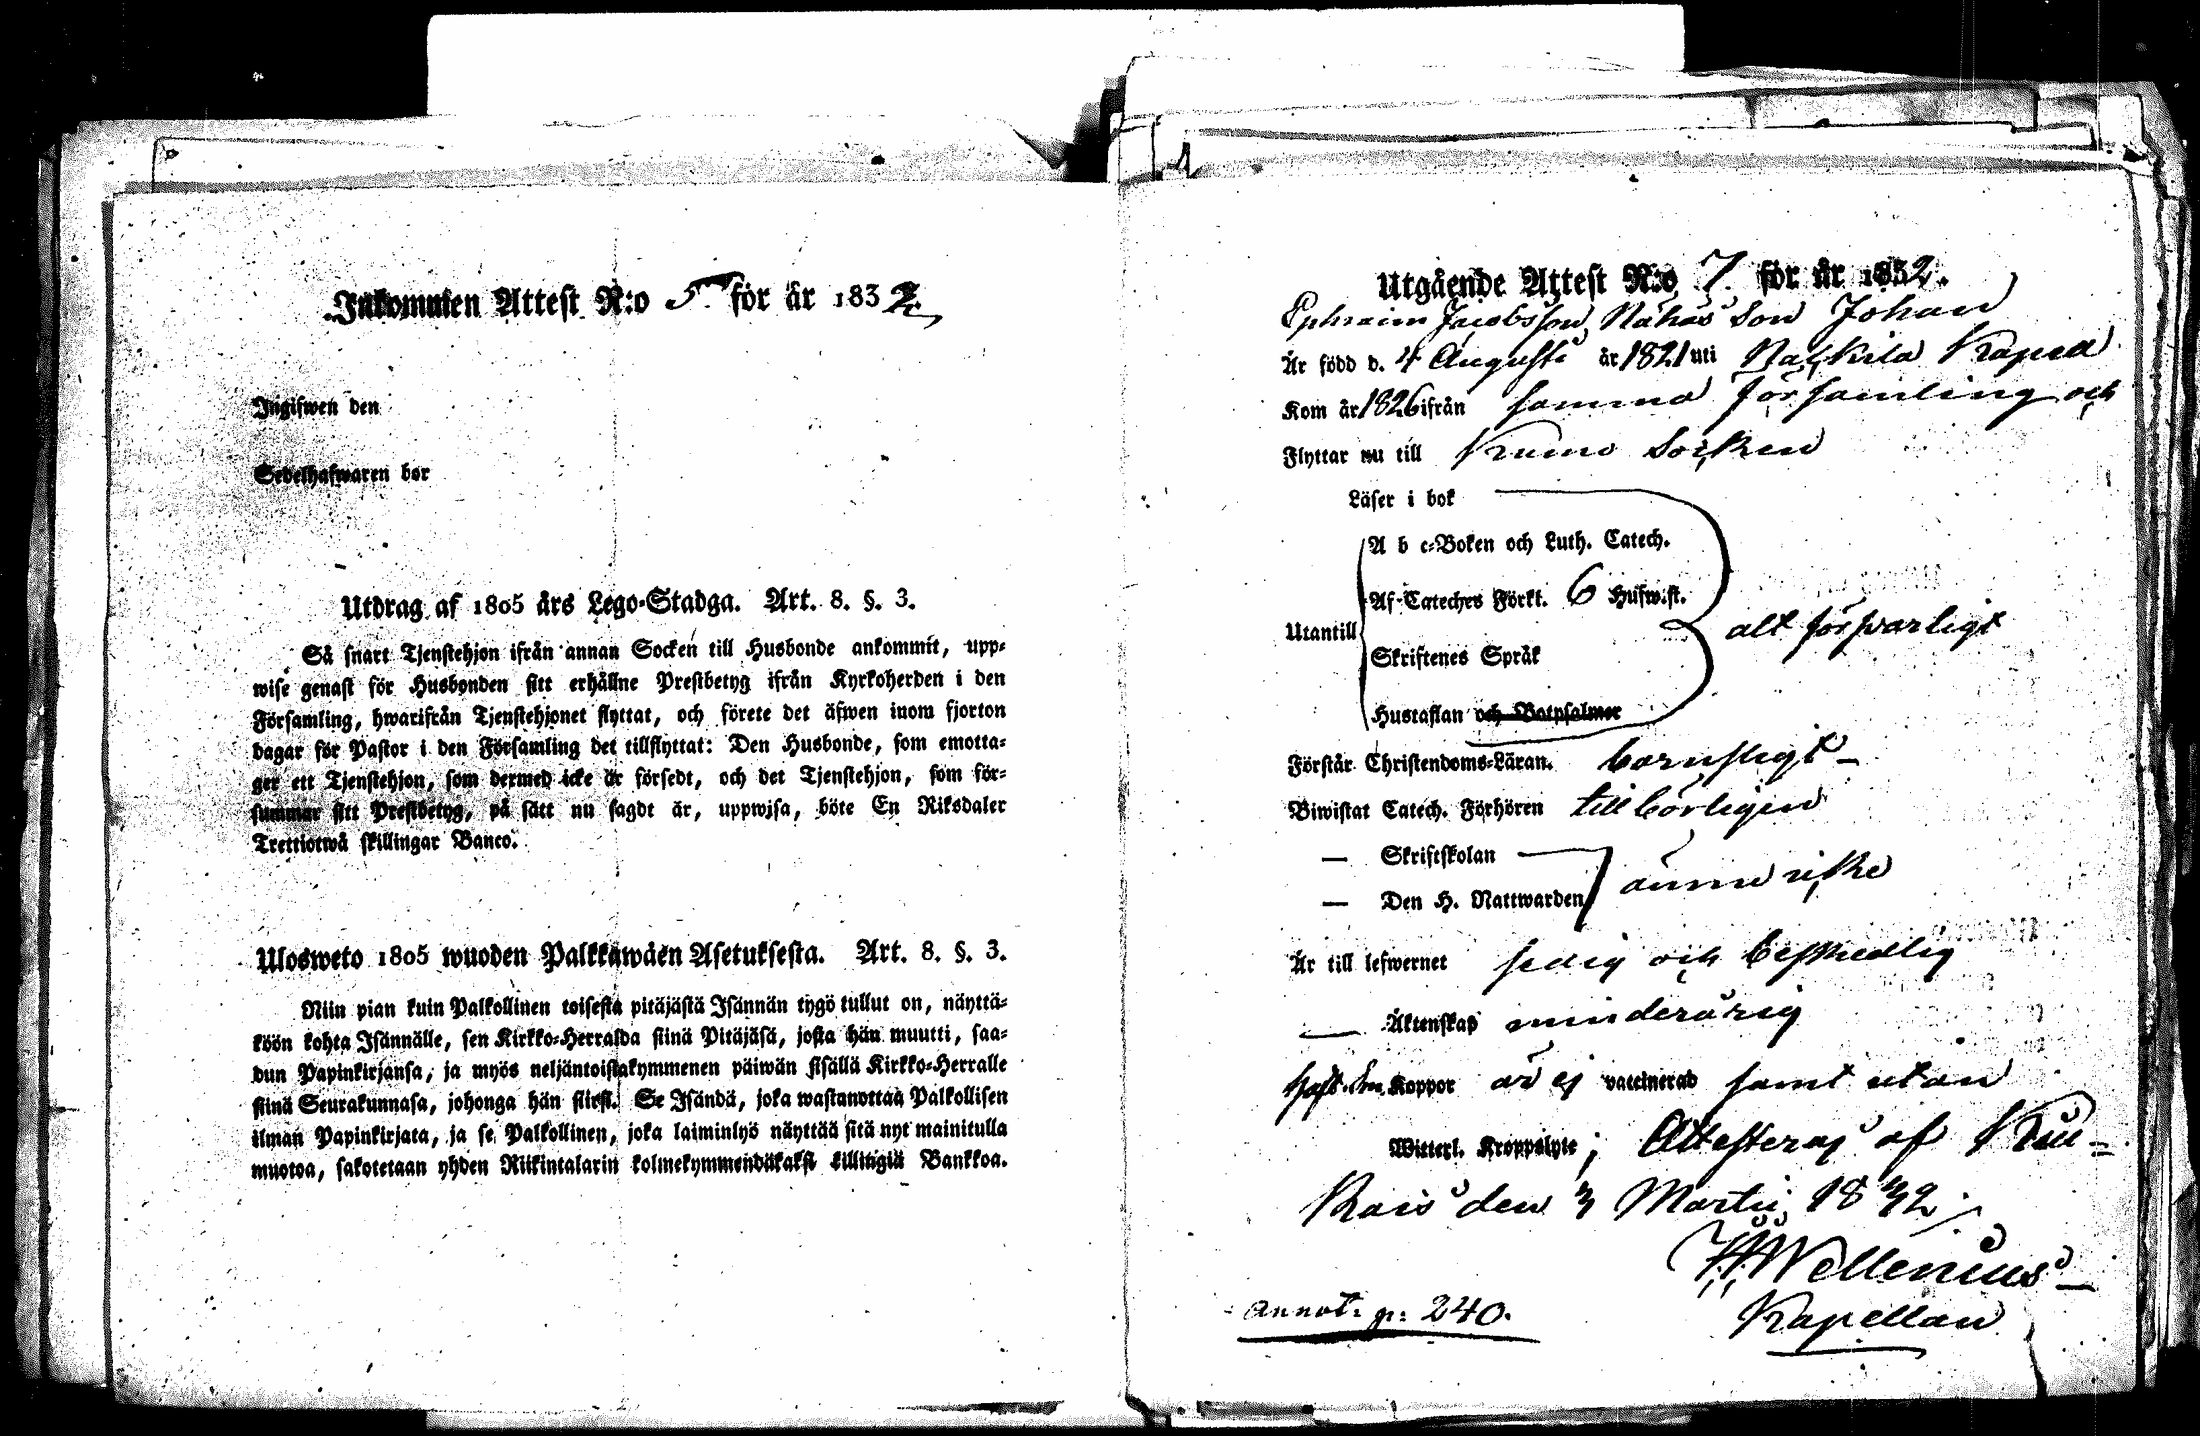 Inkommen Attest N:o 5. för år 1832.
Ingifwen den
Sedelhafwaren bor
Utdrag af 1805 års Lego-Stadga. Art. 8. §. 3.
Så snart Tjenstehjon ifrån annan Socken till Husbonde ankommit, upp-
wise genast för Husbonden sitt erhållne Prestbetyg ifrån Kyrkoherden i den
Församling, hwarifrån Tjenstehjonet flyttat, och förete det äfwen inom fjorton
dagar för Pastor i den Församling det tillflyttat: Den Husbonde, som emotta-
ger ett Tjenstehjon, som dermed icke är försedt, och det Tjenstehjon, som för-
summar sitt Prestbetyg, på sätt nu sagdt är, uppwisa, böte En Riksdaler
Trettiotwå skillingar Banco.
Ulosweto 1805 wuoden Palkkawäen Asetuksesta. Art. 8. §. 3.
Niin pian kuin Palkollinen toisesta pitäjästä Isännän tygö tullut on, näyttä-
köön kohta Isännälle, sen Kirkko-Herralda siinä Pitäjäsä, josta hän muutti, saa-
dun Papinkirjansa, ja myös neljäntoistakymmenen päiwän sisällä Kirkko-Herralle
siinä Seurakunnasa, johonga hän siirsi. Se Isändä, joka wastanottaa Palkollisen
ilman Papinkirjata, ja se Palkollinen, joka laiminlyö näyttää sitä nyt mainitulla
muotoa, sakotetaan yhden Riikintalarin kolmekymmendäkaksi killingiä Bankkoa.
Utgående Attest N:o 7. för år 1832.
Ephraim Jacobsson Nähäs Son Johan
Är född d. 4 Augusti år 1821 uti Nackila Kapell
Kom år 1826 ifrån samma församling och
Flyttar nu till Kumo Socken
Läser i bok
A b c-Boken och Luth. Catech.
Af Cateches Förkl. 6 Hufwst.
Utantill alt försvarligt
Skriftenes Språk
Hustaflan och Botpsalmer
Förstår Christendoms-Läran. barnsligt
Biwistat Catech. Förhören tillbörligen
— Skriftskolan
ännu icke
— Den H. Nattwarden
Är till lefwernet sedig och beskedlig
— Äktenskap minderårig
haft sm. Koppor är ej vaccinerad samt utan
Witterl. Kroppslyte; Attesteras af Kiu-
kais den 3 Martii 1832.
Wellenius
Kapellan
Annot: p: 240.